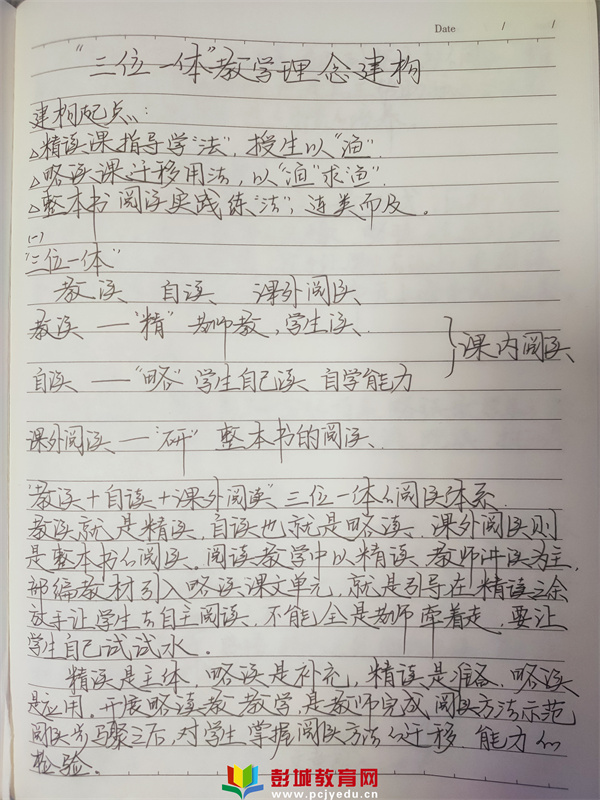 Date / /
“三位一体”教学理念建构
建构配点:
△精读课指导学“法”,授生以“渔”.
△略读课迁移用法,以“渔”求渔”.
△整本书阅读实践练“法”,连类而及。
(一)
“三位一体”
教读 自读 课外阅读
教读 — “精” 老师教,学生读.
课内阅读
自读 — “略” 学生自己读 自学能力
课外阅读 — “研” 整本书的阅读.
“教读+自读+课外阅读”三位一体的阅读体系.
教读就是精读,自读也就是略读,课外阅读则
是整本书的阅读。阅读教学中以精读、教师讲读为主,
部编教材引入略读课文单元,就是引导在精读之余
放手让学生去自主阅读,不能全是教师牵着走,要让
学生自己试试水。
精读是主体,略读是补充,精读是准备,略读
是应用。开展略读教教学,是教师完成阅读方法示范
阅读步骤之后,对学生掌握阅读方法的迁移、能力的
检验。
彭城教育网
www.pcjyedu.cn